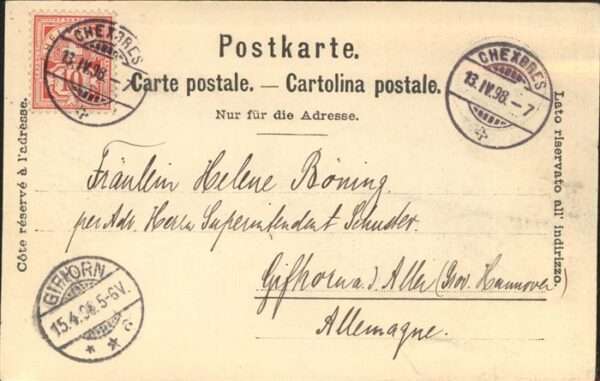 CHEXBRES
13.IV.98.
10
Postkarte.
Carte postale. — Cartolina postale.
Nur für die Adresse.
CHEXBRES
13.IV.98.-7
Côte réservé à l'adresse.
Lato riservato all' indirizzo.
Fräulein Helene Böning
per Adr. Herrn Superintendent Schuster.
Gifhorn a. d. Aller (Prov. Hannover)
Allemagne.
GIFHORN
15.4.98.5-6V.